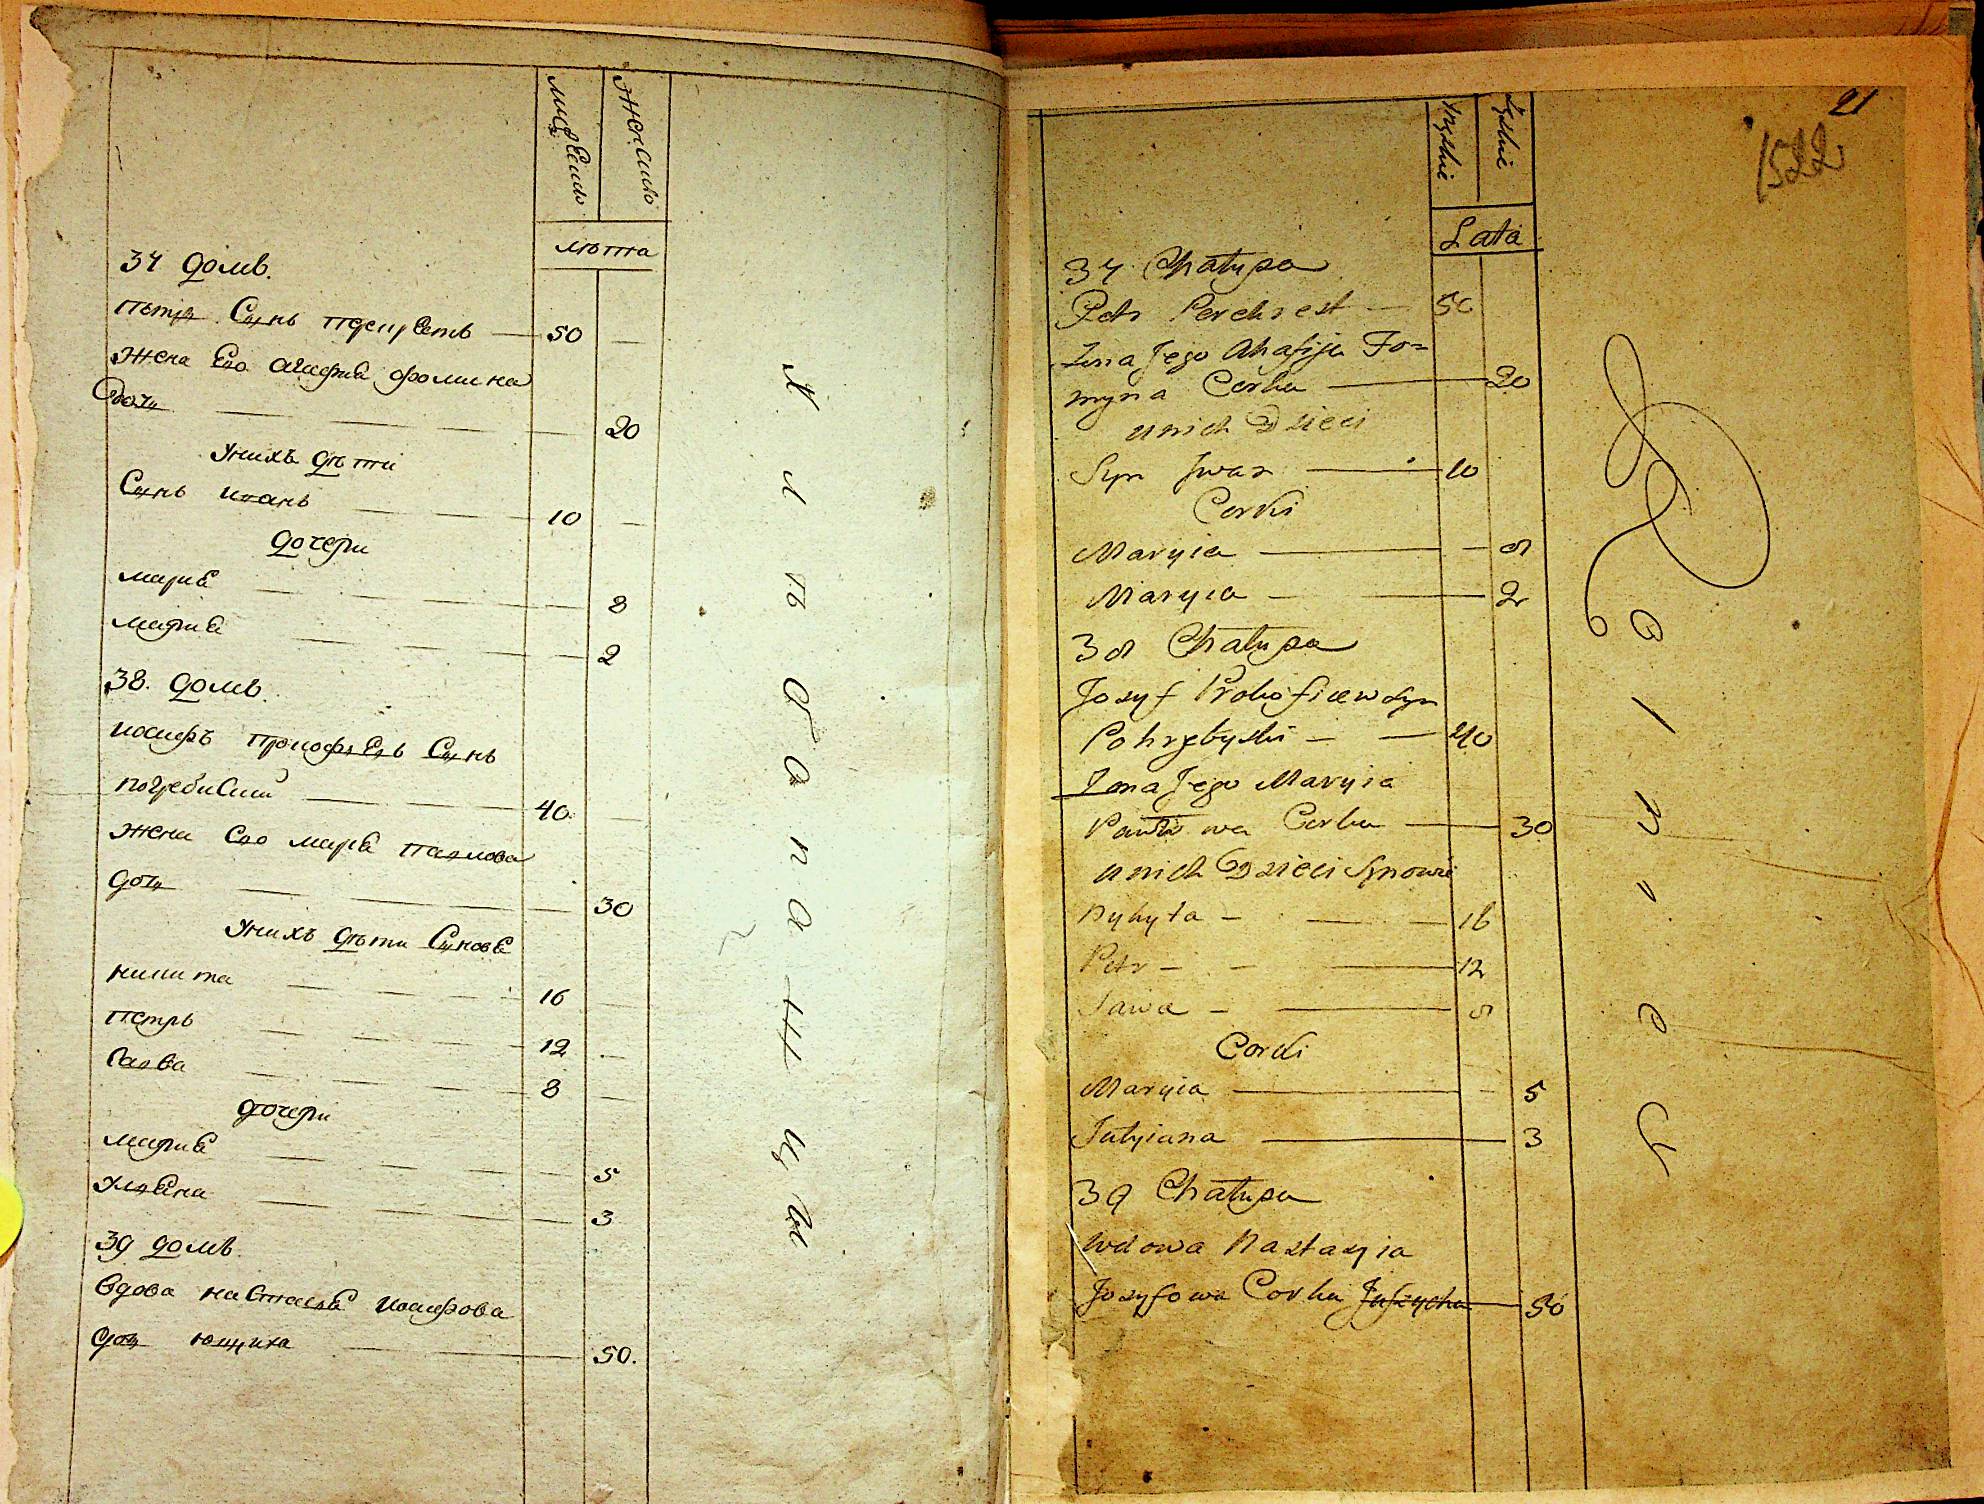 мужескъ
женскъ
лѣта
37 домъ.
петръ Сынъ перехрестъ — 50
жена Его агафиѣ фомина
дочь 20
Унихъ дѣти
Сынъ иванъ 10
дочери
мариѣ 8
мариѣ 2
38. домъ.
иосифъ прокофьевъ Сынъ
погребиский 40.
жена Его мариѣ павлова
дочь 30
Унихъ дѣти Сыновѣ
никита 16
петръ 12
Савва 8
дочери
мариѣ 5
ульѣна 3
39 домъ.
вдова настасьѣ иосифова
дочь ющиха 50.
хлѣбопашцы
21
1522
męskie
żyńskie
Lata
37 Chałupa
Petr Perechrest — 50
Żona Jego Ahafija Fo=
myna Corka — 20
u nich Dzieci
Syn Jwan — 10
Corki
Maryia — 8
Maryia — 2
38 Chałupa
Jozyf Prokofiew Syn
Pohrebyski — 40
Żona Jego Maryia
Pawłowa Corka — 30
u nich Dzieci Synowie
Nykyta — 16
Petr — 12
Sawa — 8
Corki
Maryia — 5
Julyiana — 3
39 Chałupa
Wdowa Nastazyia
Jozyfowa Corka Juszczycha — 50
Rolnicy